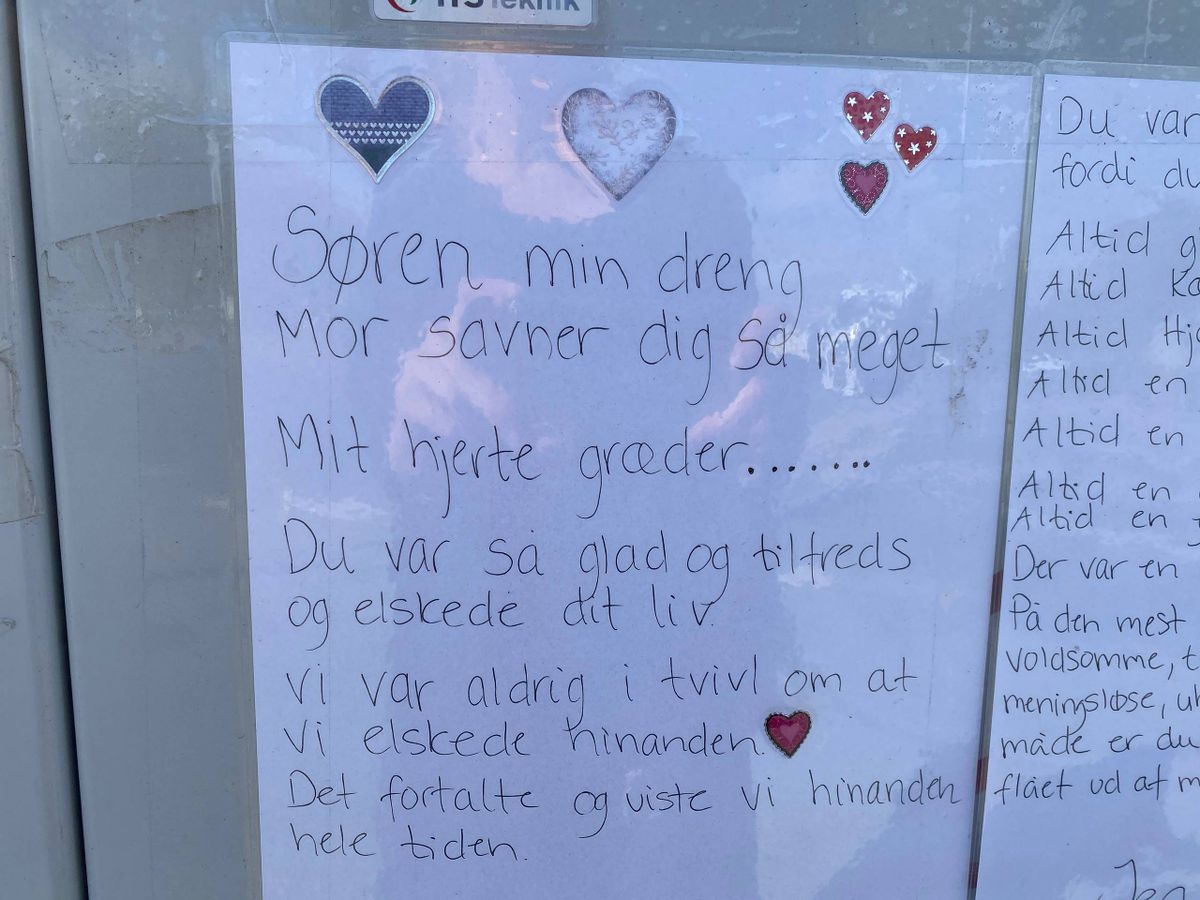 Teknik
Søren min dreng
Mor savner dig så meget
Mit hjerte græder.......
Du var så glad og tilfreds
og elskede dit liv.
Vi var aldrig i tvivl om at
vi elskede hinanden.
Det fortalte og viste vi hinanden
hele tiden.
Du var
fordi du
Altid
Altid
Altid
Altid en
Altid en
Altid en
Altid en
Der var en
På den mest
voldsomme,
meningsløse,
måde er du
flået ud af